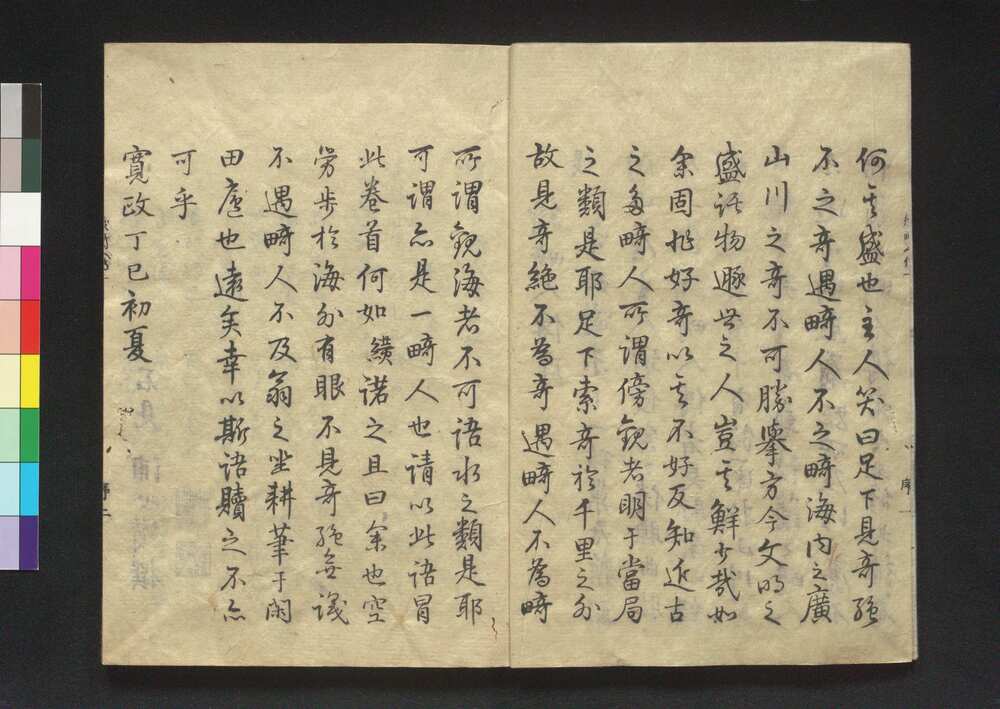 何其盛也主人笑曰足下見奇強
不之奇遇畸人不之畸海内之廣
山川之奇不可勝擧方今文明之
盛託物遯世之人豈其鮮少哉如
余固非好奇以其不好反知近古
之多畸人所謂傍観者明于當局
之類是耶足下索奇於千里之外
故見奇絶不為奇遇畸人不為畸
所謂観海者不可語水之類是耶
可謂亦是一畸人也請以此語冒
此巻首何如績諾之且曰余也空
労歩於海外有眼不見奇強無識
不遇畸人不及翁之坐耕筆于閑
田廬也遠矣幸以斯語贖之不亦
可乎
寛政丁巳初夏
序一
序二